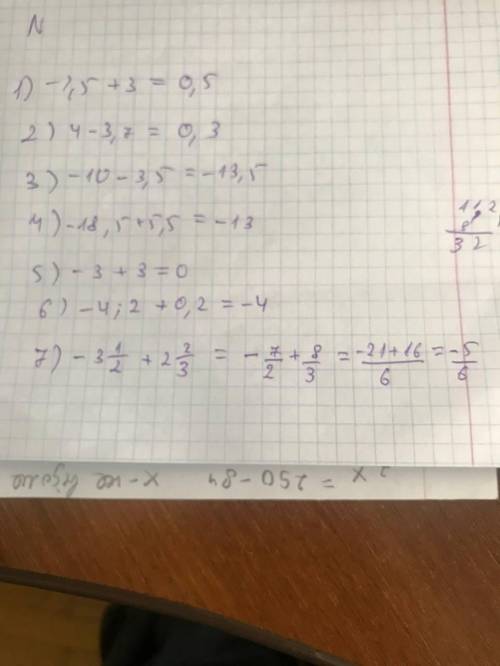 N
1) -2,5 + 3 = 0,5
2) 4 - 3,7 = 0,3
3) -10 - 3,5 = -13,5
4) -18,5 + 5,5 = -13
5) -3 + 3 = 0
6) -4;2 + 0,2 = -4
7) -3 1/2 + 2 2/3 = -7/2 + 8/3 = -21+16/6 = -5/6
32
x = 250 - 84 x - не